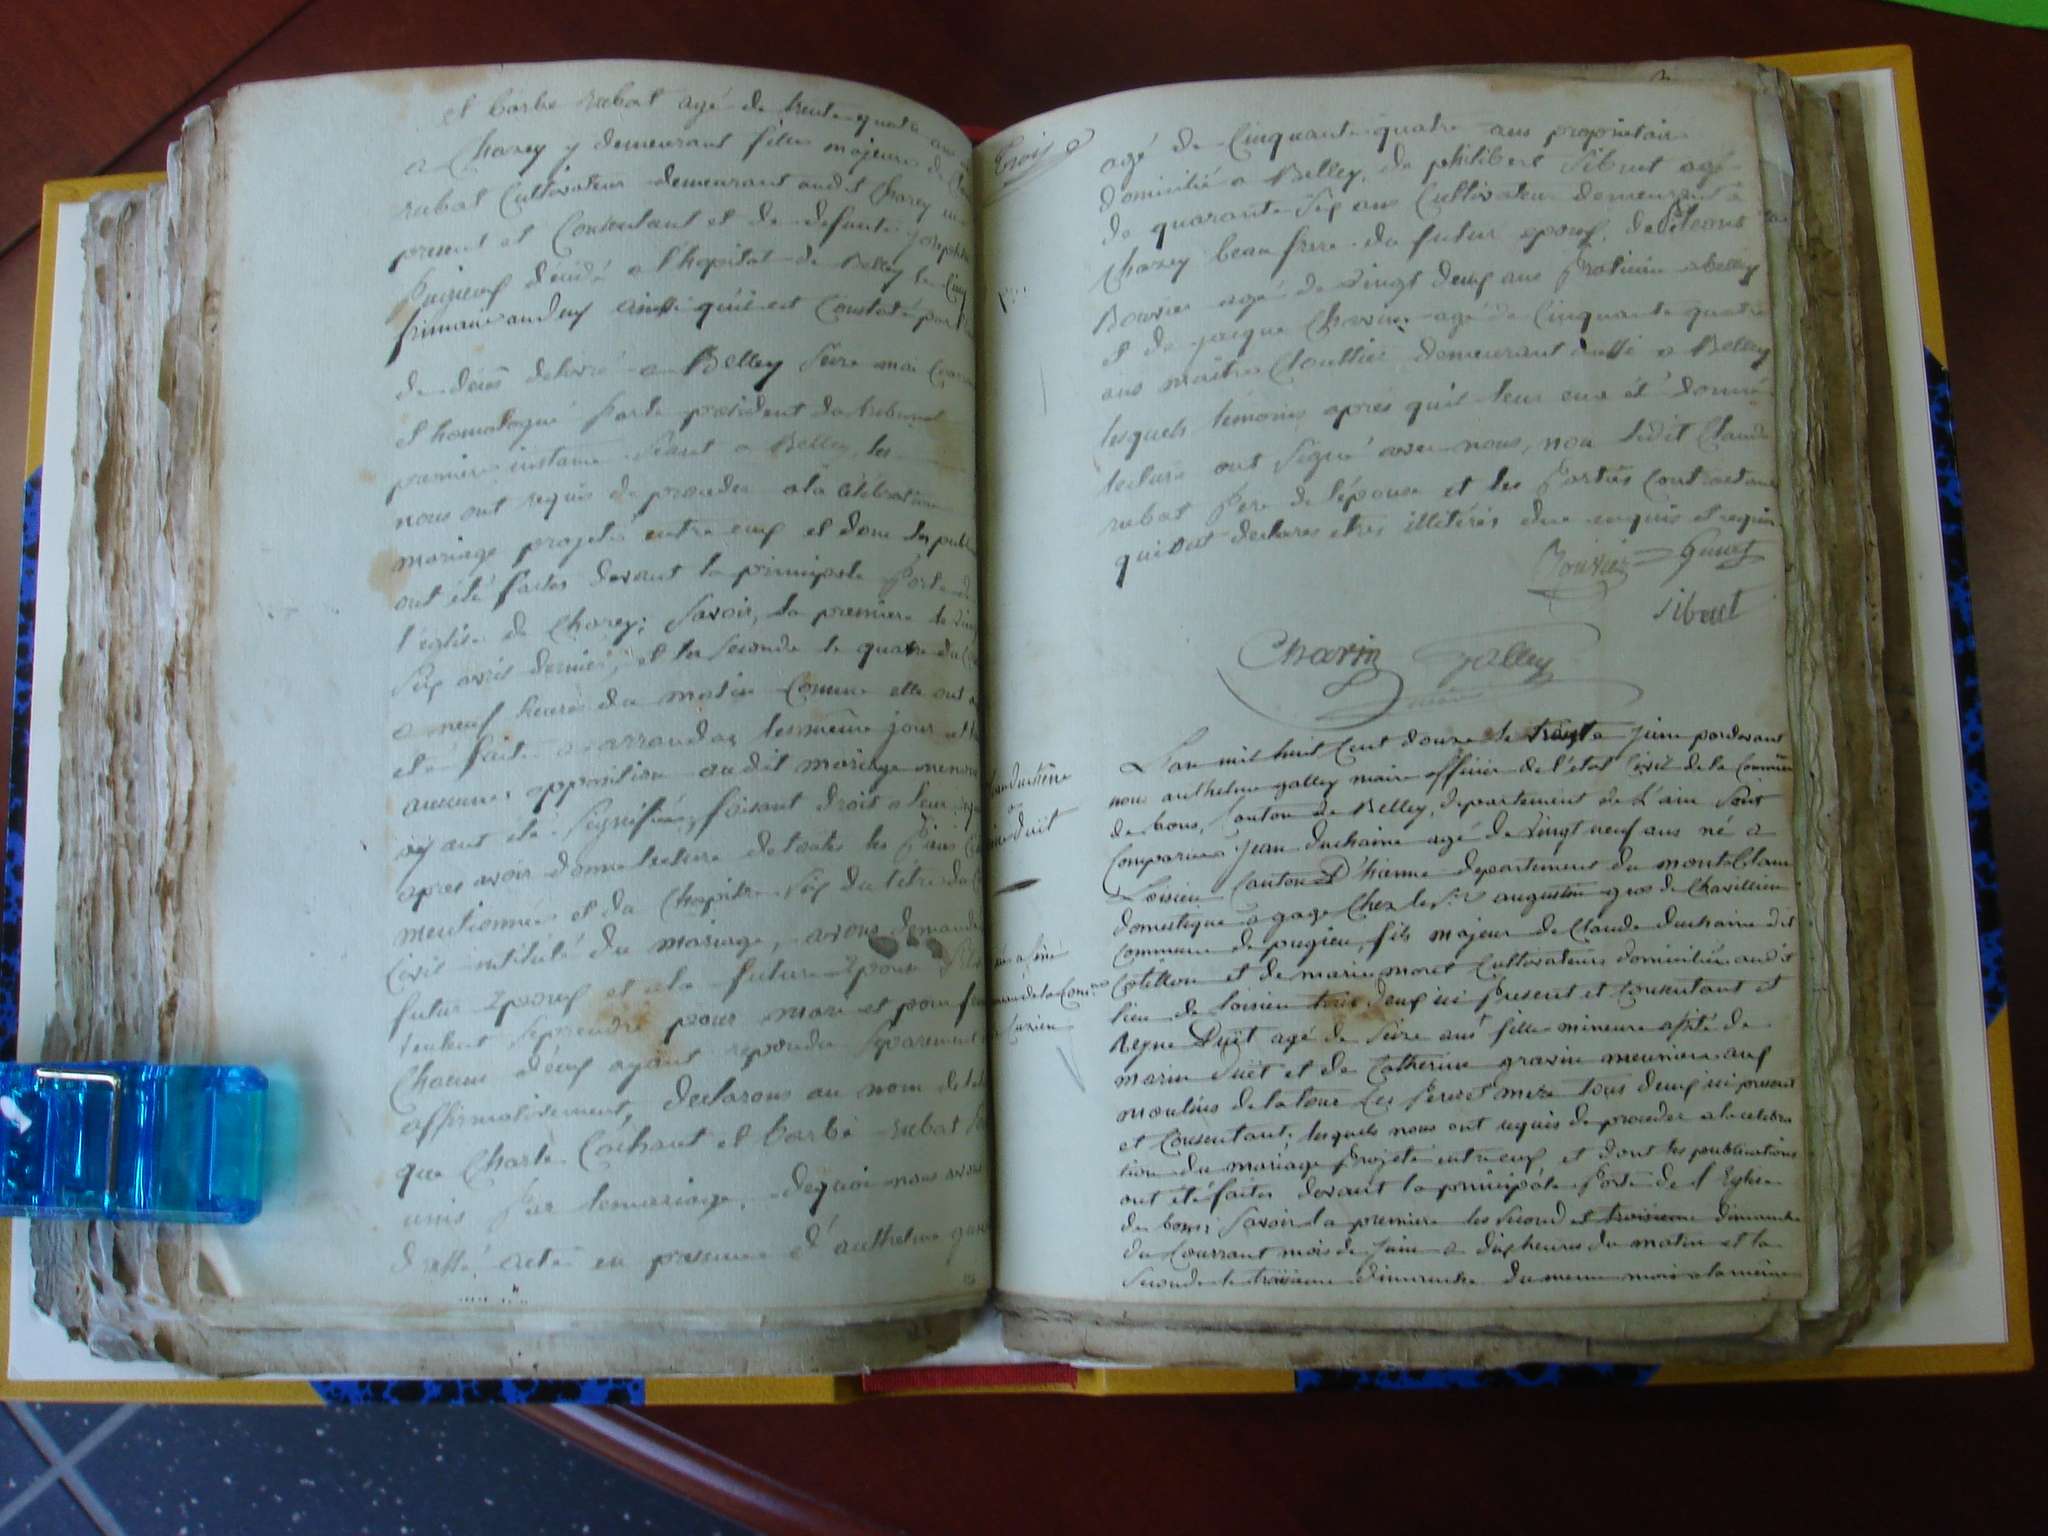 et barbe rubat agé de trente quatre ans
a Chazey y demeurant filie majeure de
rubat Cultivateur demeurant audit Chazey
present et Consentant et de defunte josephte
décédé a l'hopital de Belley le Cinq
frimaire an deux ainsi qu'il est Constaté par
de décès délivré a Belley seize mai
et homologué par le président du tribunal
premiere instance séant a Belley, les
nous ont requis de proceder a la célébration
mariage projeté entre eux et dont les publi
ont été faites devant la principale porte de
l'église de Chazey; savoir, la premiere le vingt
six avril dernier, et la seconde le quatre du
a neuf heures du matin Comme elle ont
été faite a arrandas les même jour et
aucunes opposition audit mariage
ayant été signifiée, faisant droit a leur
apres avoir donné lecture de toutes les pieces
mentionnées et du Chapitre six du titre du
Civil intitulé du mariage, avons demandé
futur Epoux et a la future Epouse s'ils
veulent se prendre pour mari et pour fem
Chacun d'eux ayant repondu séparement
affirmativement, declarons au nom de la
que Charle Cochaut et barbe rubat sont
unis par le mariage. dequoi nous avons
dressé acte en presence d'anthelme
trois
agé de Cinquante quatre ans proprietaire
domicilié a Belley, de philibert Sibuet agé
de quarante six ans Cultivateur demeurant a
Chazey beau frere du futur epoux, de
Bouvier agé de vingt deux ans praticien a belley
et de jacque Charin agé de Cinquante quatre
ans maitre Clouttier demeurant aussi a Belley
lesquels témoins apres qu'il leur en a été donné
lecture ont signé avec nous, non ledit Claude
rubat pere de l'épouse et les parties Contractant
qui ont declares etres illitérés de ce enquis et requis
Bouvier
Sibuet
Charin galley
L'an mil huit cent douze le trente juin pardevant
nous anthelme galley maire officier de l'état Civil de la Commune
de bons, Canton de Belley, departement de L'ain sont
Comparus jean duchaine agé de vingt neuf ans né a
Loisieu Canton D'hienne departement du montblanc
domestique a gage Chez le Sr augustin gros de Chavillieu
Commune de pugieu, fils majeur de Claude duchaine dit
Cotillon et de marie moret Cultivateurs domiciliés audit
lieu de loisieu tous deux ici present et Consentant et
Reyne Duït agé de seize ans fille mineure
marin Duït et de Catherine gravin meuniers aux
moulins de la tour Les pere et mere tous deux ici present
et Consentant; lesquels nous ont requis de proceder a la celebra
tion du mariage projeté entre eux et dont les publications
ont été faites devant la principale porte de l'Eglise
de bons; savoir la premiere les second et troisieme dimanche
du Courrant mois de juin a dix heures du matin et la
seconde le troisieme dimanche du meme mois a la même